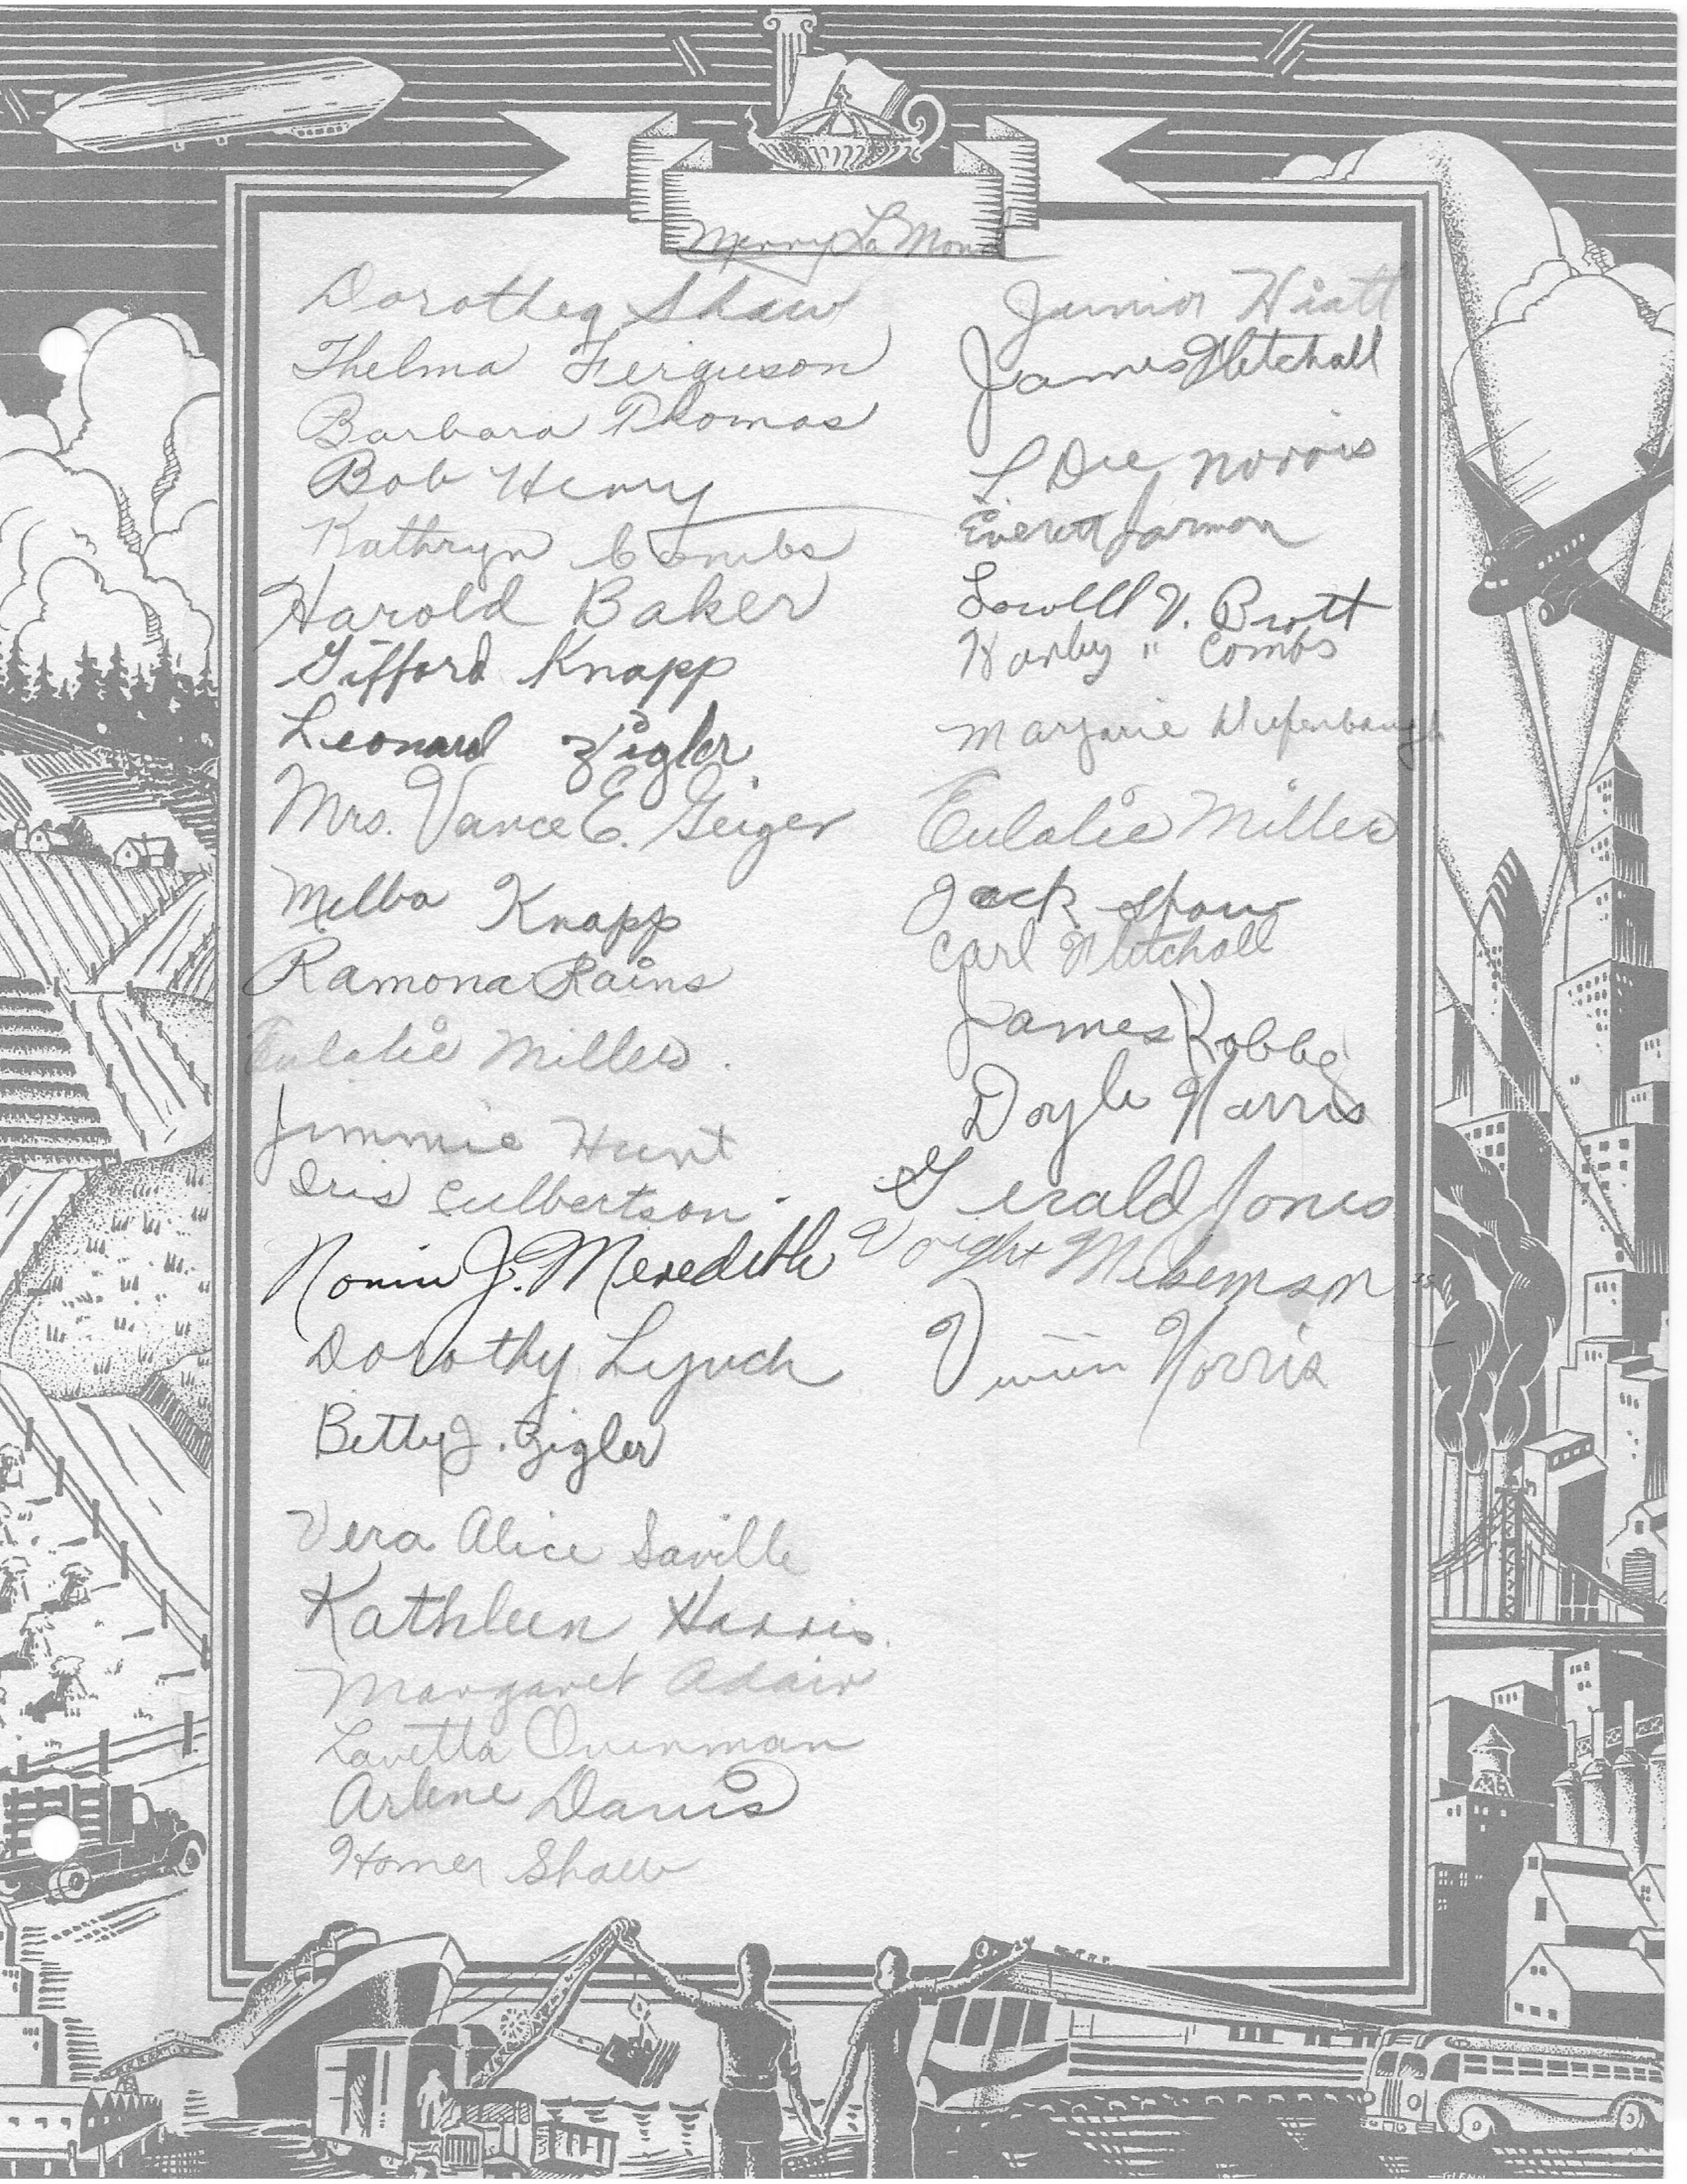 Merry La Mond
Dorothea Shaw
Thelma Ferguson
Barbara Thomas
Bob Henry
Kathryn Combs
Harold Baker
Gifford Knapp
Leonard Zigler
Mrs. Vance E. Geiger
Melba Knapp
Ramona Rains
Eulalie Miller.
Jimmie Hunt
Iris Culbertson
J. Meredith
Dorothy Lynch
Betty J. Zigler
Vera Alice Saville
Kathleen Harris.
Margaret Adair
Lavetta Overman
Arlene Davis
Homer Shaw
Junior Hiatt
James Fletchall
L. Dee Norris
Everett Jarmon
Lowell V. Pratt
Harley " Combs
Marjorie Diefenbaugh
Eulalie Miller
Jack Shaw
Carl Fletchall
James Kobbe
Doyle Harris
Gerald Jones
Norris